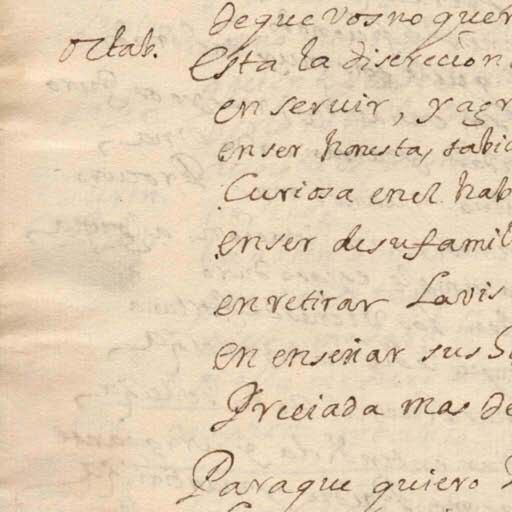 deque vos no quer
Octab. Esta la discrecion
en seruir, y agr
en ser honesta, sabia
Curiosa en el hab
en ser de su famil
en retirar La vis
en enseñar sus
Preciada mas de
Paraque quiero